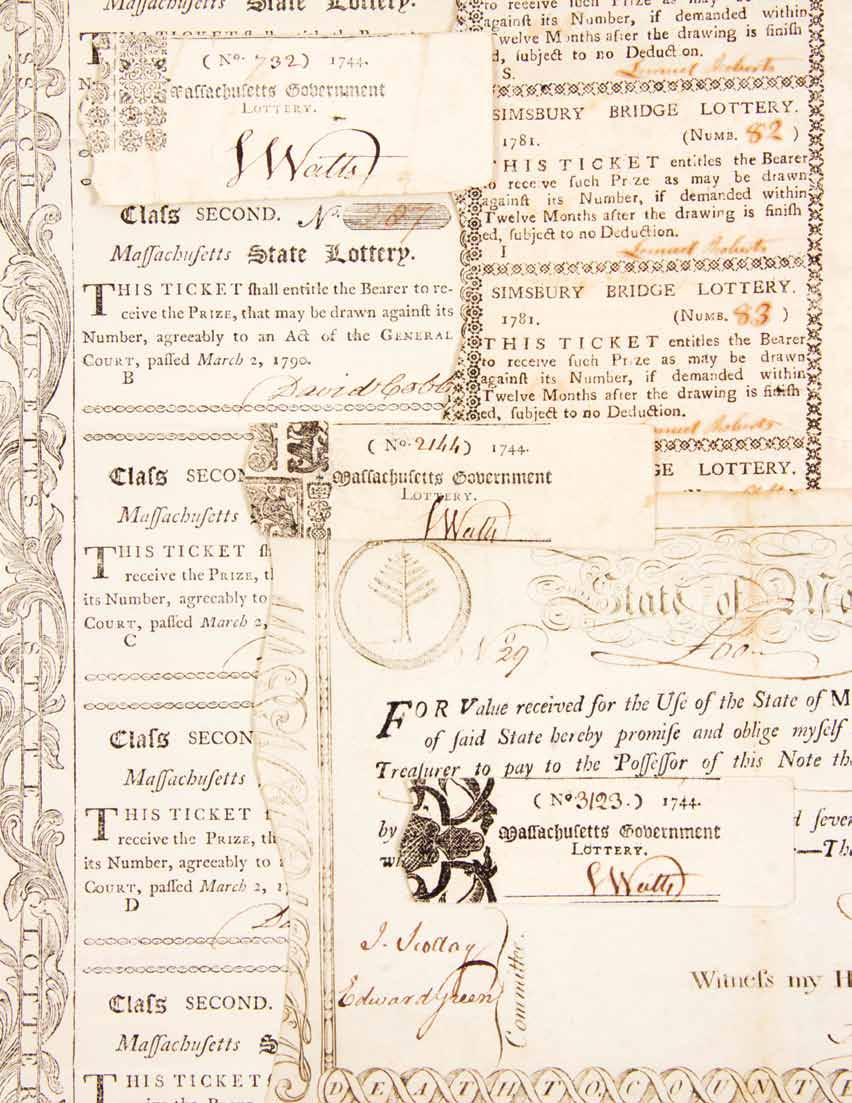 Massachusetts State Lottery.
(No. 732) 1744.
Massachusetts Government
LOTTERY.
S Watts
Claſs SECOND. No. 207
Maſſachuſetts State Lottery.
THIS TICKET ſhall entitle the Bearer to re-
ceive the PRIZE, that may be drawn againſt its
Number, agreeably to an Act of the GENERAL
COURT, paſſed March 2, 1790.
B
David Cobb
to receive ſuch Prize as may be
againſt its Number, if demanded within
Twelve Months after the drawing is finiſh
ed, ſubject to no Deduction.
S.
Lemuel Roberts
SIMSBURY BRIDGE LOTTERY.
1781. (NUMB. 82 )
THIS TICKET entitles the Bearer
to receive ſuch Prize as may be drawn
againſt its Number, if demanded within
Twelve Months after the drawing is finiſh
ed, ſubject to no Deduction.
I
Lemuel Roberts
SIMSBURY BRIDGE LOTTERY.
1781. (NUMB. 83 )
THIS TICKET entitles the Bearer
to receive ſuch Prize as may be drawn
againſt its Number, if demanded within
Twelve Months after the drawing is finiſh
ed, ſubject to no Deduction.
Lemuel Roberts
GE LOTTERY.
(No. 2144) 1744.
Maſſachuſetts Government
LOTTERY.
S Watts
Claſs SECON
Maſſachuſetts
THIS TICKET ſh
receive the PRIZE, th
its Number, agreeably to
COURT, paſſed March 2,
C
Claſs SECON
Maſſachuſetts
THIS TICKET
receive the PRIZE, th
its Number, agreeably to
COURT, paſſed March 2, 1
D
Claſs SECOND.
Maſſachuſetts S
THIS TICKET
MASSACHUSETTS STATE LOTTER
State of Ma
No 29
FOR Value received for the Uſe of the State of M
of ſaid State hereby promiſe and oblige myſelf
Treaſurer to pay to the Poſſeſſor of this Note th
by
d ſeve
—Th
(No 3123.) 1744.
Maſſachuſetts Government
LOTTERY.
S Watts
J. Scollay
Edward Green
Committee.
Witneſs my H
DEATH TO COUNTE